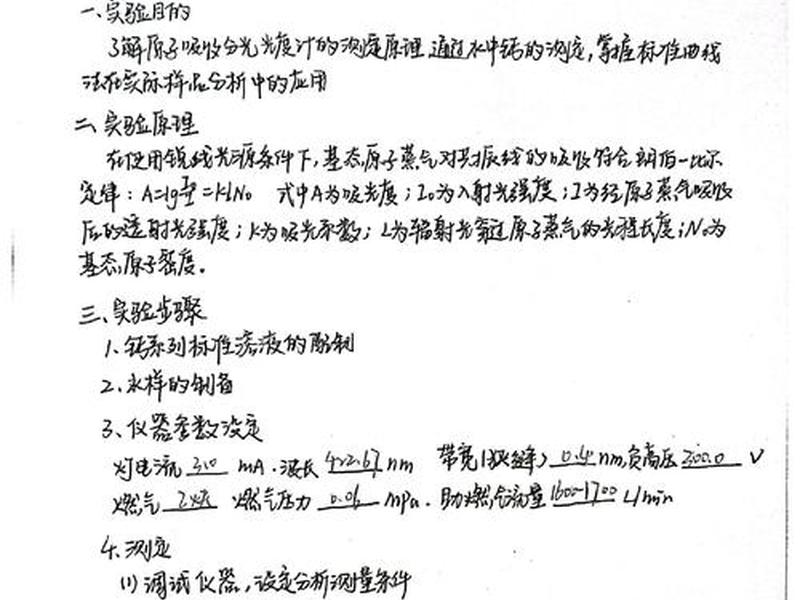 一、实验目的
了解原子吸收分光光度计的测定原理 通过水中钙的测定,掌握标准曲线
法在实际样品分析中的应用
二、实验原理
在使用锐线光源条件下,基态原子蒸气对共振线的吸收符合朗伯-比尔
定律:A=lg I0/I=KLN0 式中A为吸光度;I0为入射光强度;I为经原子蒸气吸收
后的透射光强度;K为吸光系数;L为辐射光穿过原子蒸气的光程长度;N0为
基态原子密度。
三、实验步骤
1、钙系列标准溶液的配制
2、水样的制备
3、仪器参数设定
灯电流 3.0 mA.波长 422.67 nm 带宽(狭缝) 0.4 nm,负高压 300.0 V
燃气 乙炔 燃气压力 0.06 mpa. 助燃气流量 1600-1700 L/min
4.测定
(1)调试仪器,设定分析测量条件